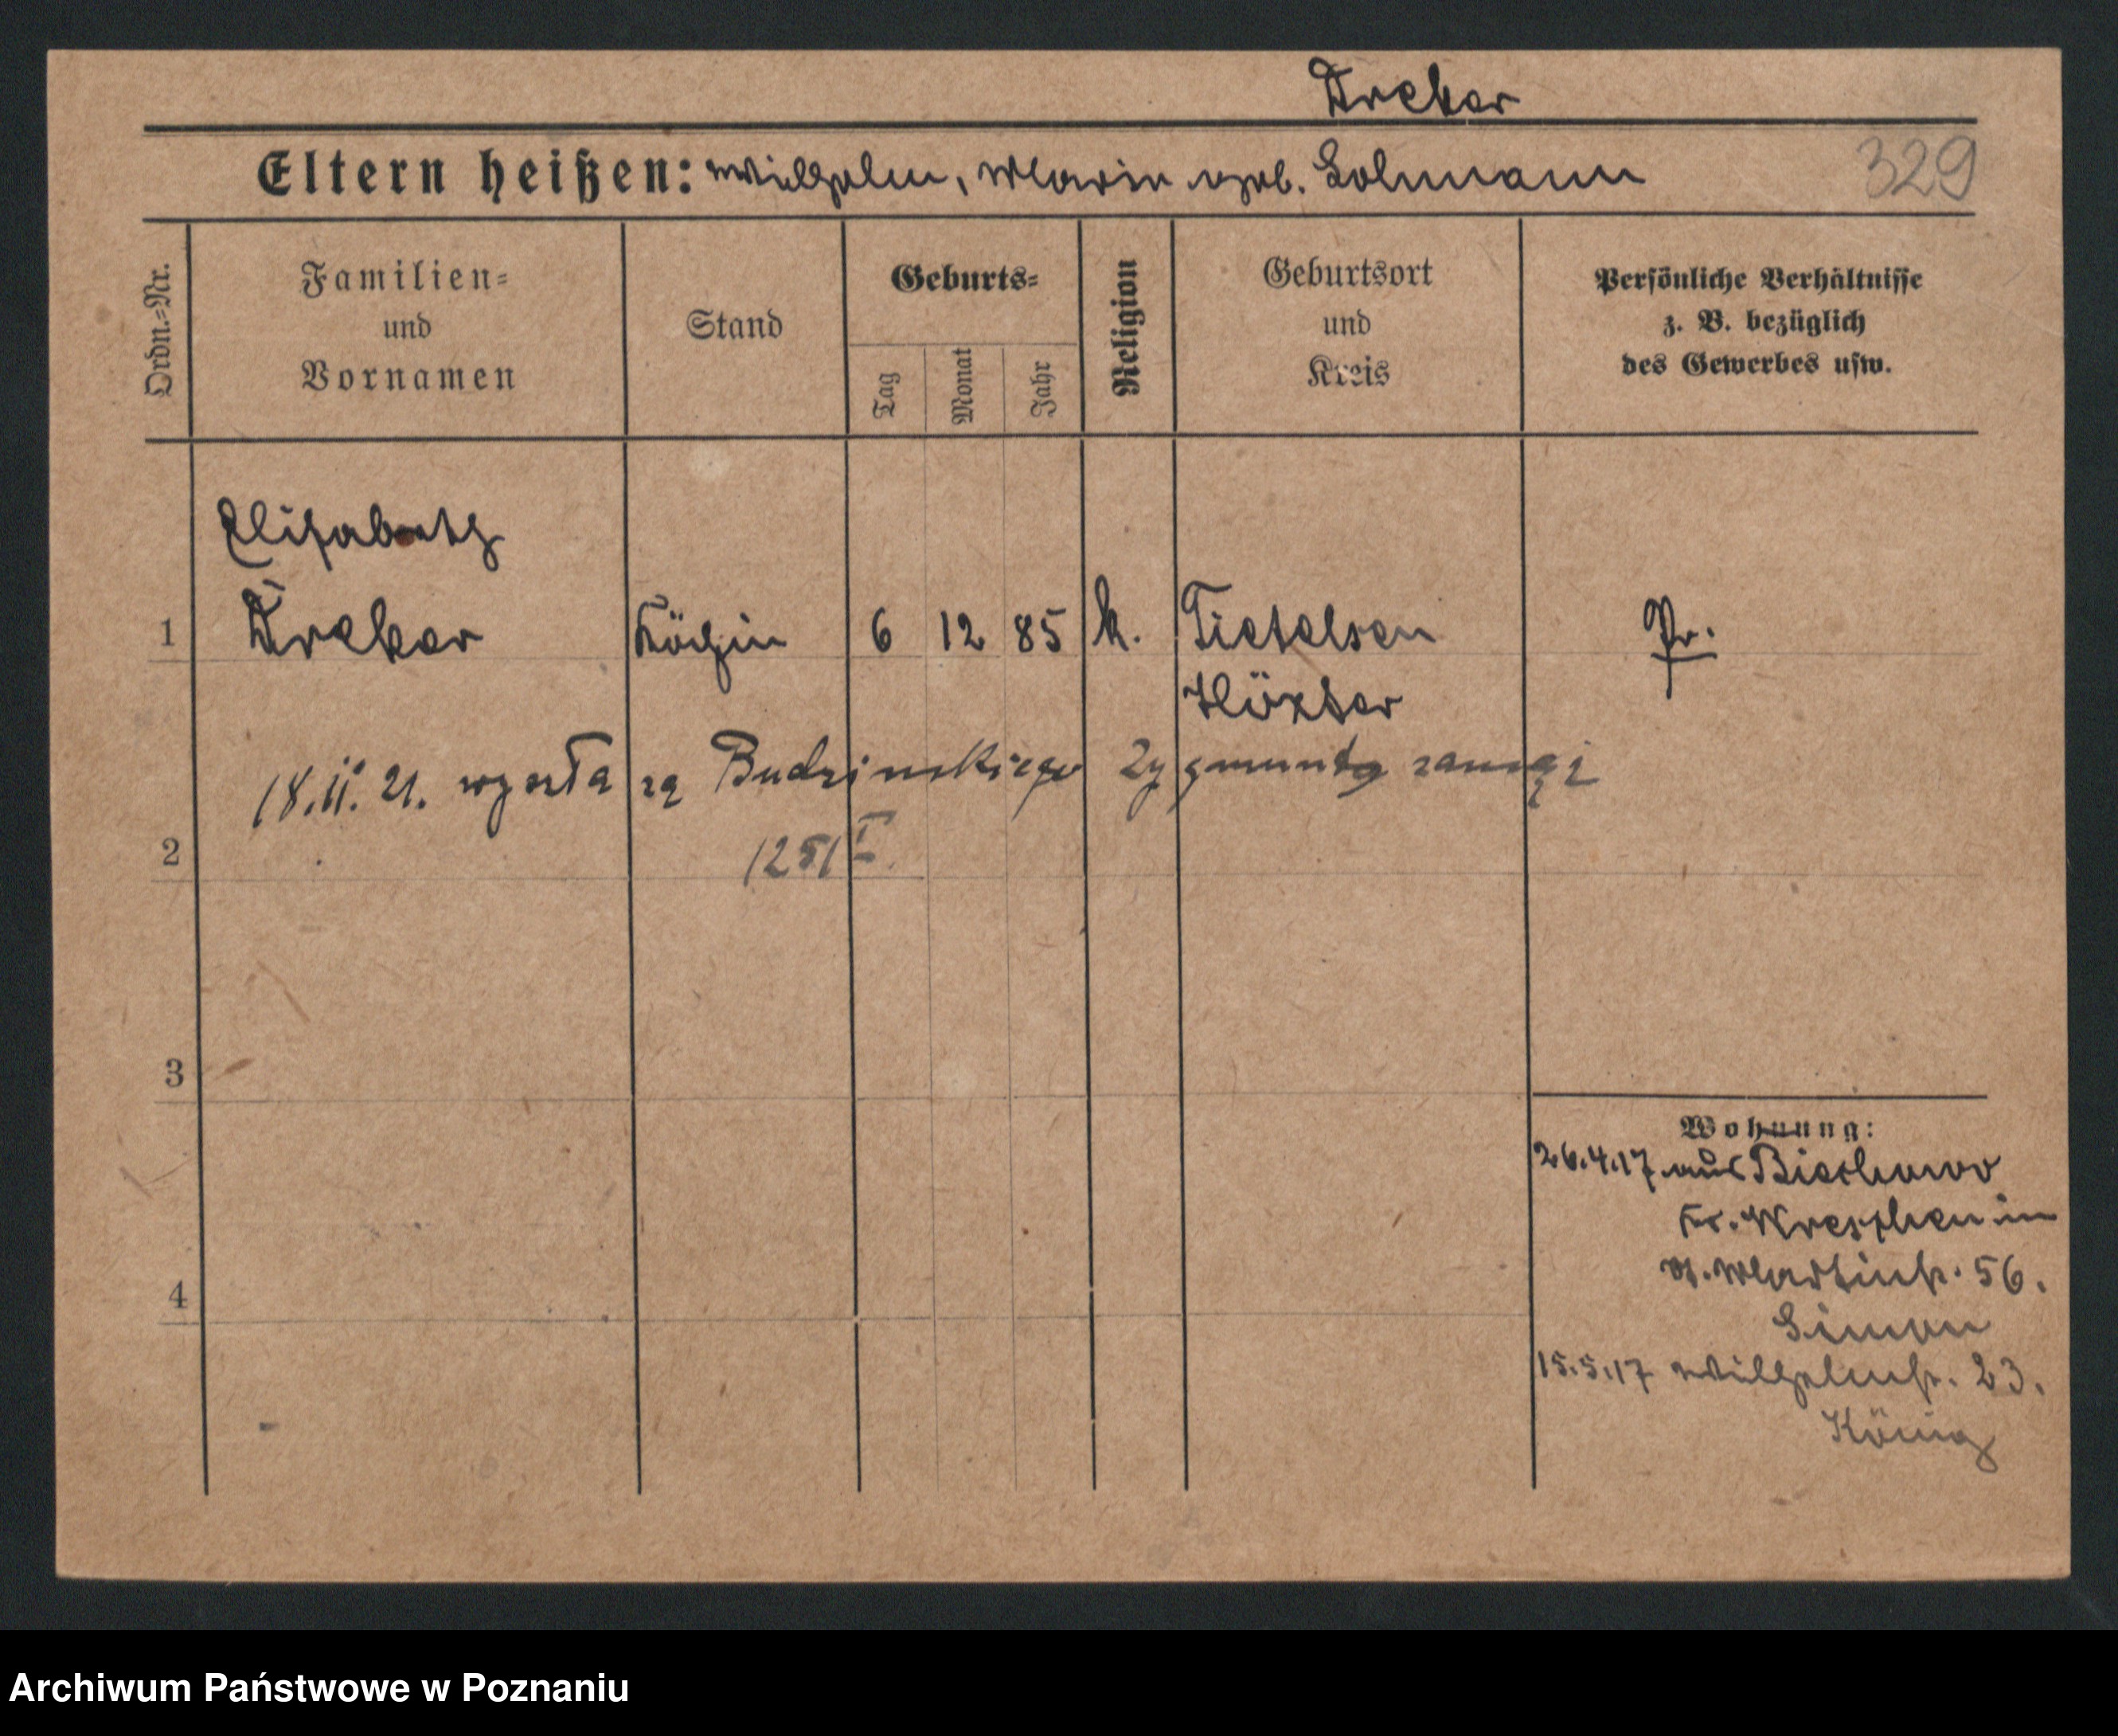 Dreker
Eltern heißen: Wilhelm, Marie geb. Lohmann 329
Ordn.-Nr.
Familien-
und
Vornamen
Stand
Geburts-
Tag
Monat
Jahr
Religion
Geburtsort
und
Kreis
Persönliche Verhältnisse
z. B. bezüglich
des Gewerbes usw.
Elisabeth
1 Dreker Köchin 6 12 85 k. Tietelsen Pr.
Höxter
18.II. 21. wyszła za Budzinskiego Zygmunta zamąż
2 1251 I.
3
4
Wohnung:
26.4.17 aus Biechowo
Kr. Wreschen in
St. Martinstr. 56.
Simon
15.5.17 Wilhelmstr. 23.
König
Archiwum Państwowe w Poznaniu